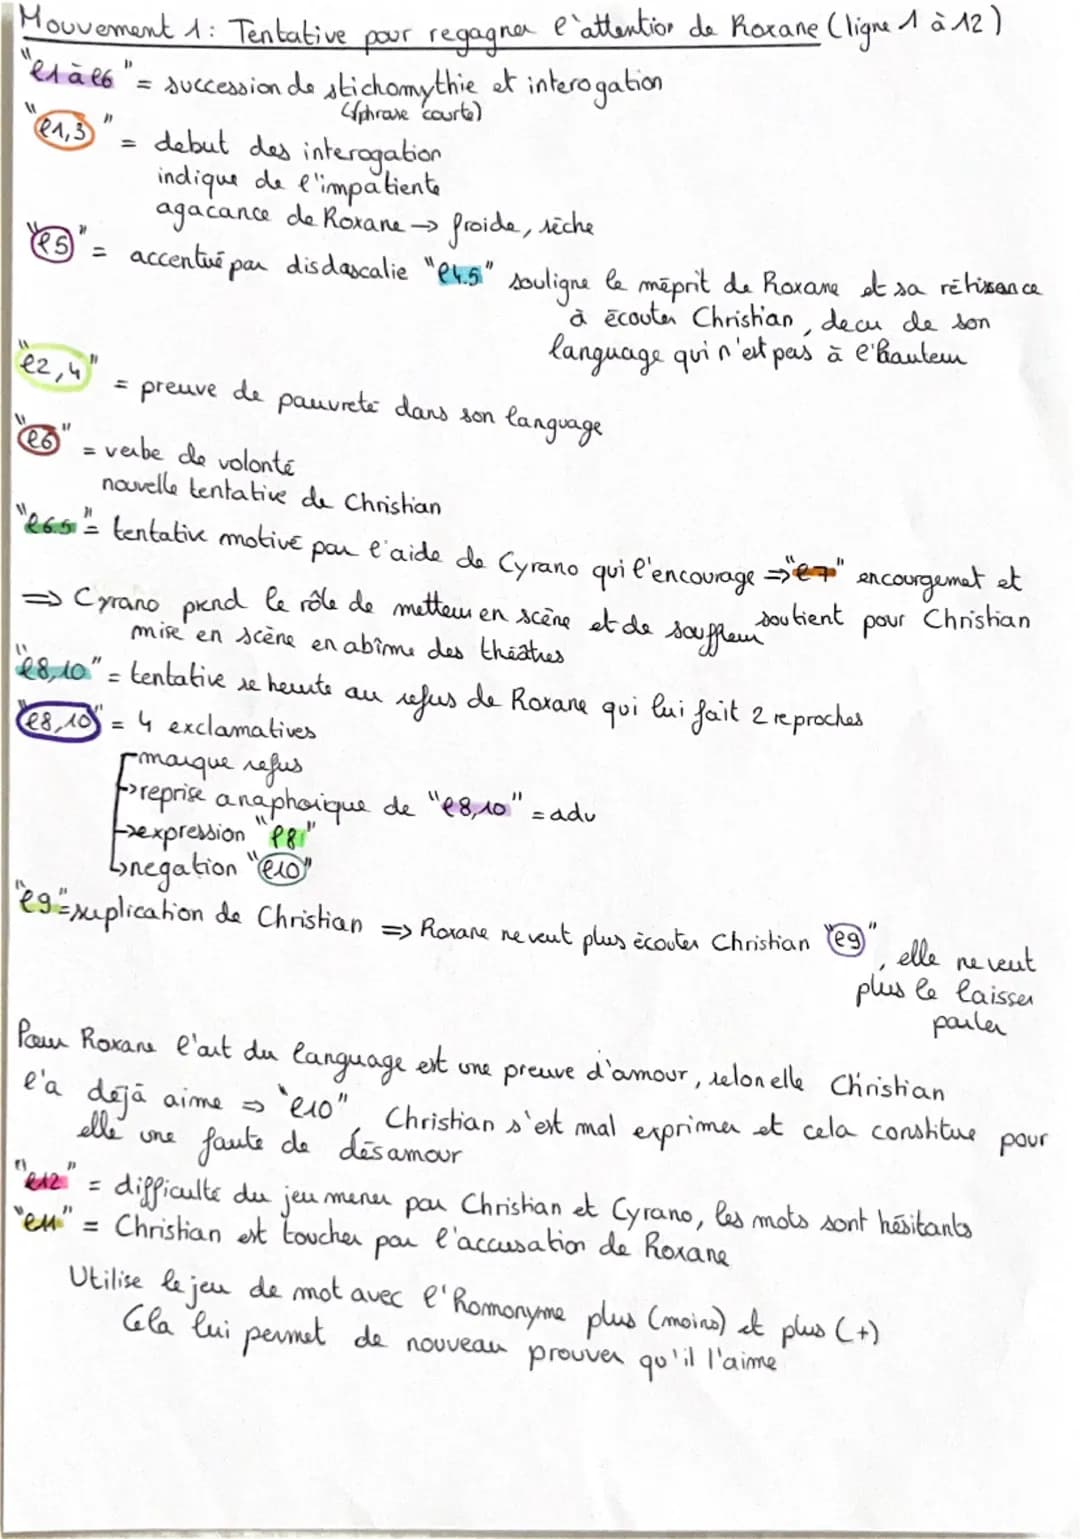 Mouvement 1: Tentative pour regagner l'attention de Roxane (ligne 1 à 12)
"l1 à l6" = succession de stichomythie et interogation
(phrase courte)
"l1,3" = debut des interogation
indique de l'impatiente
agacance de Roxane → froide, sèche
"l5" = accentué par disdascalie "l4.5" souligne le méprit de Roxane et sa rétisance
à écouter Christian, decu de son
language qui n'est pas à l'hauteur
"l2,4" = preuve de pauvreté dans son language
"l6" = verbe de volonté
nouvelle tentative de Christian
"l6.5" = tentative motivé par l'aide de Cyrano qui l'encourage ⇒ "l7" encourgemet et
soutient pour Christian
⇒ Cyrano prend le rôle de metteur en scène et de souffleur
mise en scène en abîme des théâtres
"l8,10" = tentative se heurte au refus de Roxane qui lui fait 2 reproches
"l8,10" = 4 exclamatives
marque refus
→ reprise anaphorique de "l8,10" = adv
→ expression "l8"
→ negation "l10"
"l9" = suplication de Christian ⇒ Roxane ne veut plus écouter Christian "l9", elle ne veut
plus le laisser
parler
Pour Roxane l'art du language est une preuve d'amour, selon elle Christian
l'a déjà aime ⇒ "l10" Christian s'est mal exprimer et cela constitue pour
elle une faute de désamour
"l12" = difficulté du jeu mener par Christian et Cyrano, les mots sont hésitants
"l11" = Christian est toucher par l'accusation de Roxane
Utilise le jeu de mot avec l'homonyme plus (moins) et plus (+)
Cela lui permet de nouveau prouver qu'il l'aime